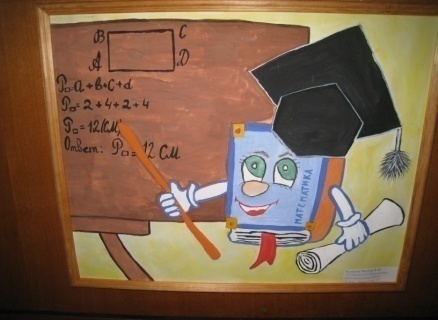 B C
A D
P▭=a+b+c+d
P▭=2+4+2+4
P▭=12(см)
Ответ: P▭=12 см
МАТЕМАТИКА